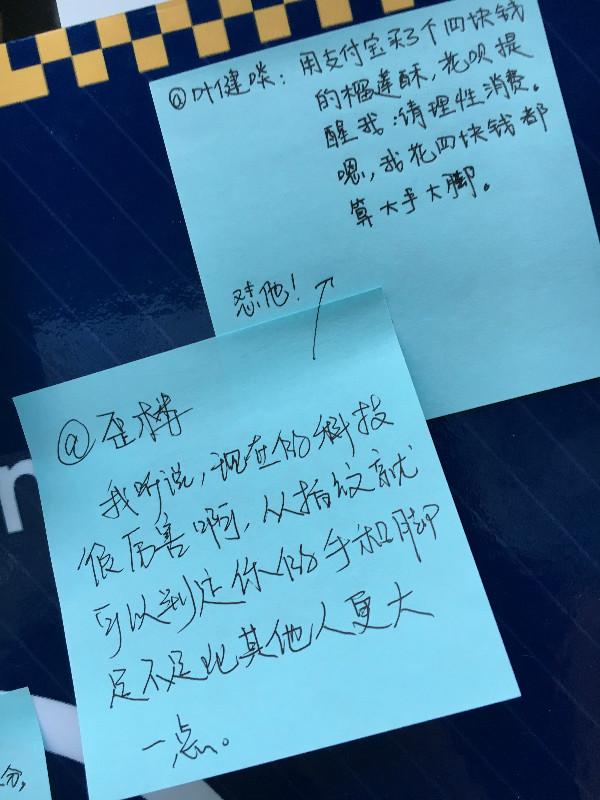 @叶健啖：用支付宝买3个四块钱
的榴莲酥，花呗提
醒我：请理性消费。
嗯，我花四块钱都
算大手大脚。
怼他！
@歪棒
我听说，现在的科技
很厉害啊，从指纹就
可以判定你的手和脚
是不是比其他人更大
一点。
n